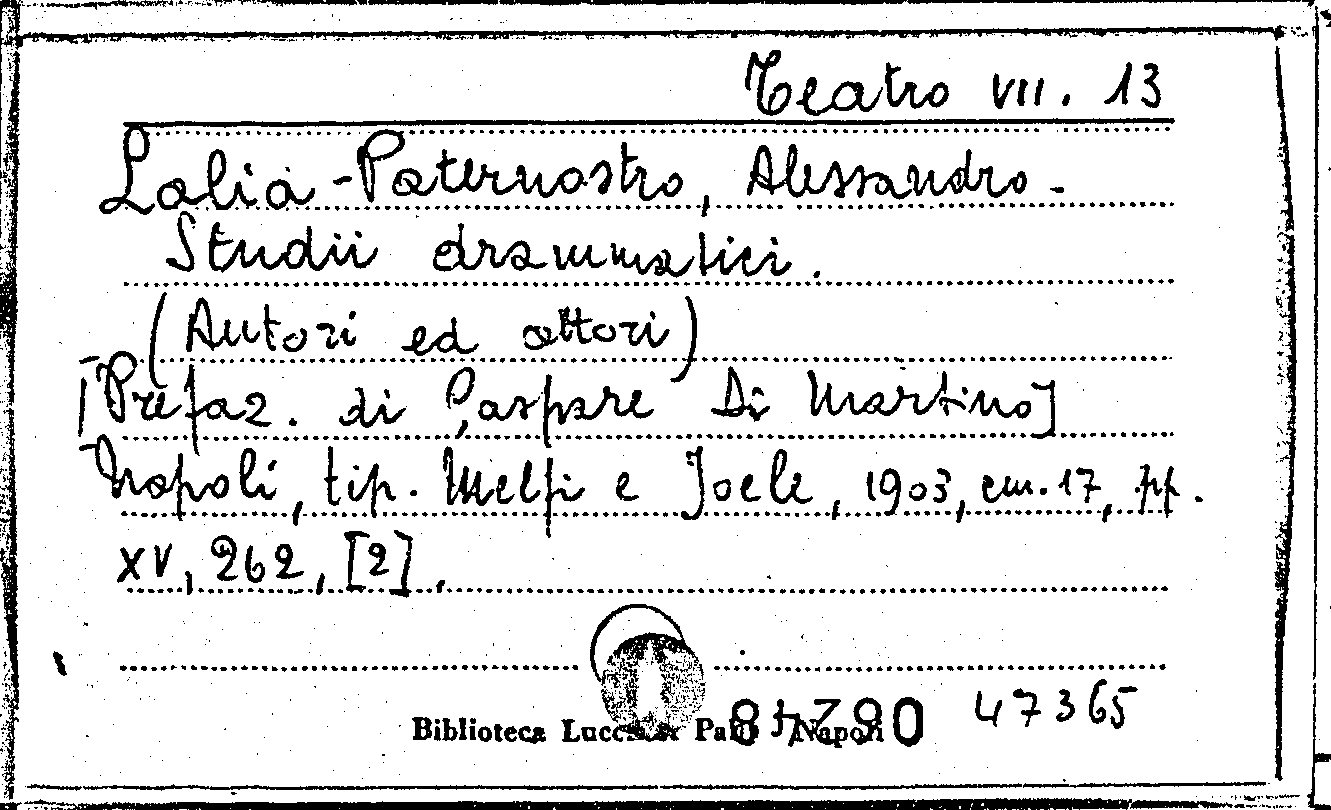 Teatro VII. 13
Lalia-Paternostro, Alessandro.
Studii drammatici.
(Autori ed attori)
[Prefaz. di Gaspare Di Martino]
Napoli, tip. Melfi e Joele, 1903, cm. 17, pp.
XV, 262, [2].
47365
Biblioteca Napoli